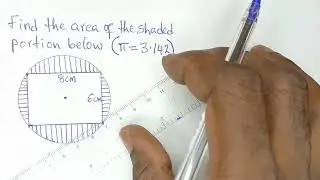 Find the area of the shaded
portion below (π = 3.142)
8cm
6cm